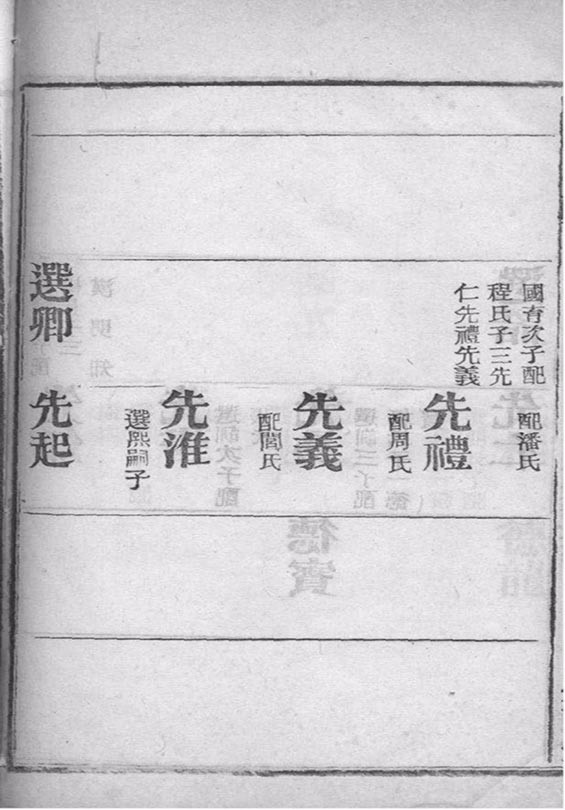 國有次子配
程氏子三先
仁先禮先義
選卿
配潘氏
先禮
配周氏
先義
配閻氏
先淮
選熙嗣子
先起